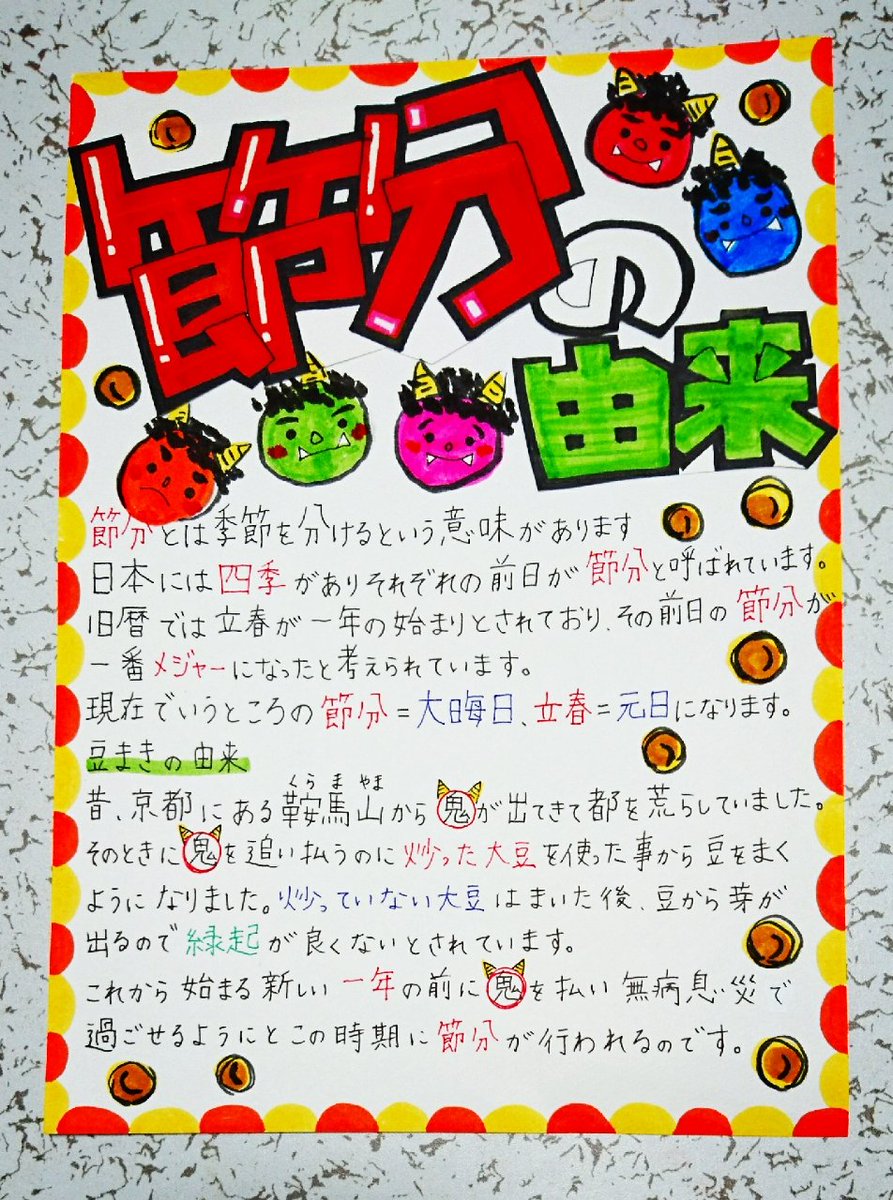 節分の由来
節分とは季節を分けるという意味があります
日本には四季がありそれぞれの前日が節分と呼ばれています。
旧暦では立春が一年の始まりとされており、その前日の節分が
一番メジャーになったと考えられています。
現在でいうところの節分=大晦日、立春=元日になります。
豆まきの由来
くらまやま
昔、京都にある鞍馬山から鬼が出てきて都を荒らしていました。
そのときに鬼を追い払うのに炒った大豆を使った事から豆をまく
ようになりました。炒っていない大豆はまいた後、豆から芽が
出るので縁起が良くないとされています。
これから始まる新しい一年の前に鬼を払い無病息災で
過ごせるようにとこの時期に節分が行われるのです。